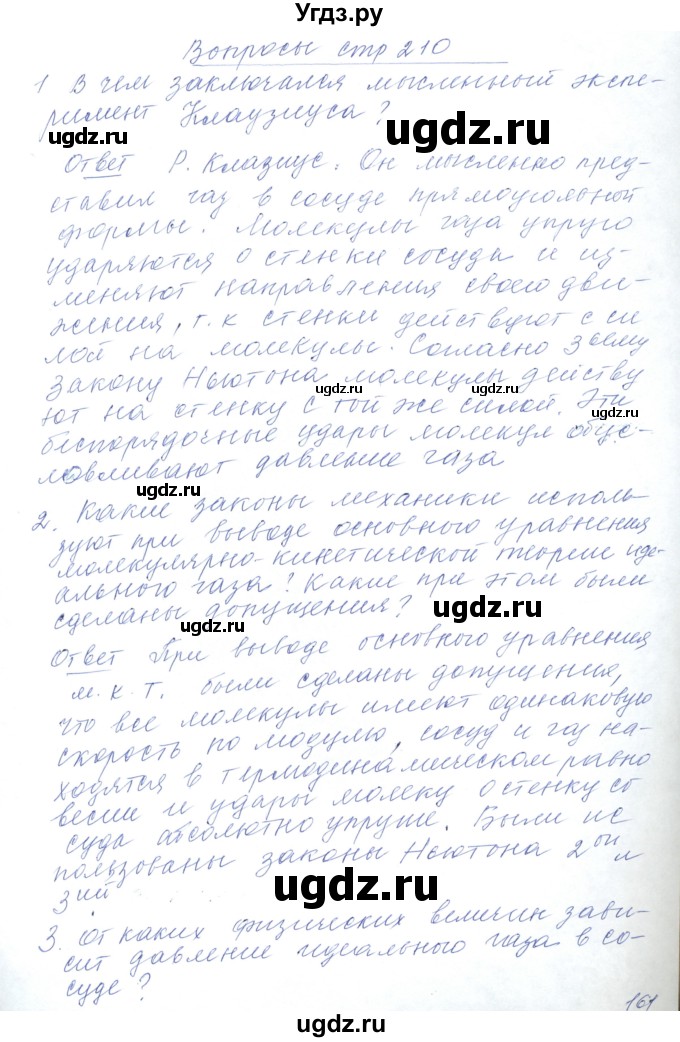 Угдз.ру
Вопросы стр 210
1 В чем заключался мысленный экспе-
римент Клаузиуса?
Ответ Р. Клазиус. Он мысленно пред-
ставил газ в сосуде прямоугольной
формы. Молекулы газа упруго
ударяются о стенки сосуда и из-
меняют направления своего дви-
жения, т.к стенки действуют с си
лой на молекулы. Согласно 3ему
закону Ньютона молекулы действу
ют на стенку с той же силой. Эти
беспорядочные удары молекул обус-
ловливают давление газа
2. Какие законы механики исполь-
зуют при выводе основного уравнения
молекулярно-кинетической теории иде-
ального газа? Какие при этом были
сделаны допущения?
Ответ При выводе основного уравнения
м.к.т. были сделаны допущения,
что все молекулы имеют одинаковую
скорость по модулю, сосуд и газ на-
ходятся в термодинамическом равно
весии и удары молеку о стенку со
суда абсолютно упруше. Были ис
пользованы законы Ньютона 2ой и
3ий
3. От каких физических величин зави-
сит давление идеального газа в со-
суде?
161
ugdz.ru
ugdz.ru
ugdz.ru
ugdz.ru
ugdz.ru
ugdz.ru
ugdz.ru
ugdz.ru
ugdz.ru
ugdz.ru
ugdz.ru
ugdz.ru
ugdz.ru